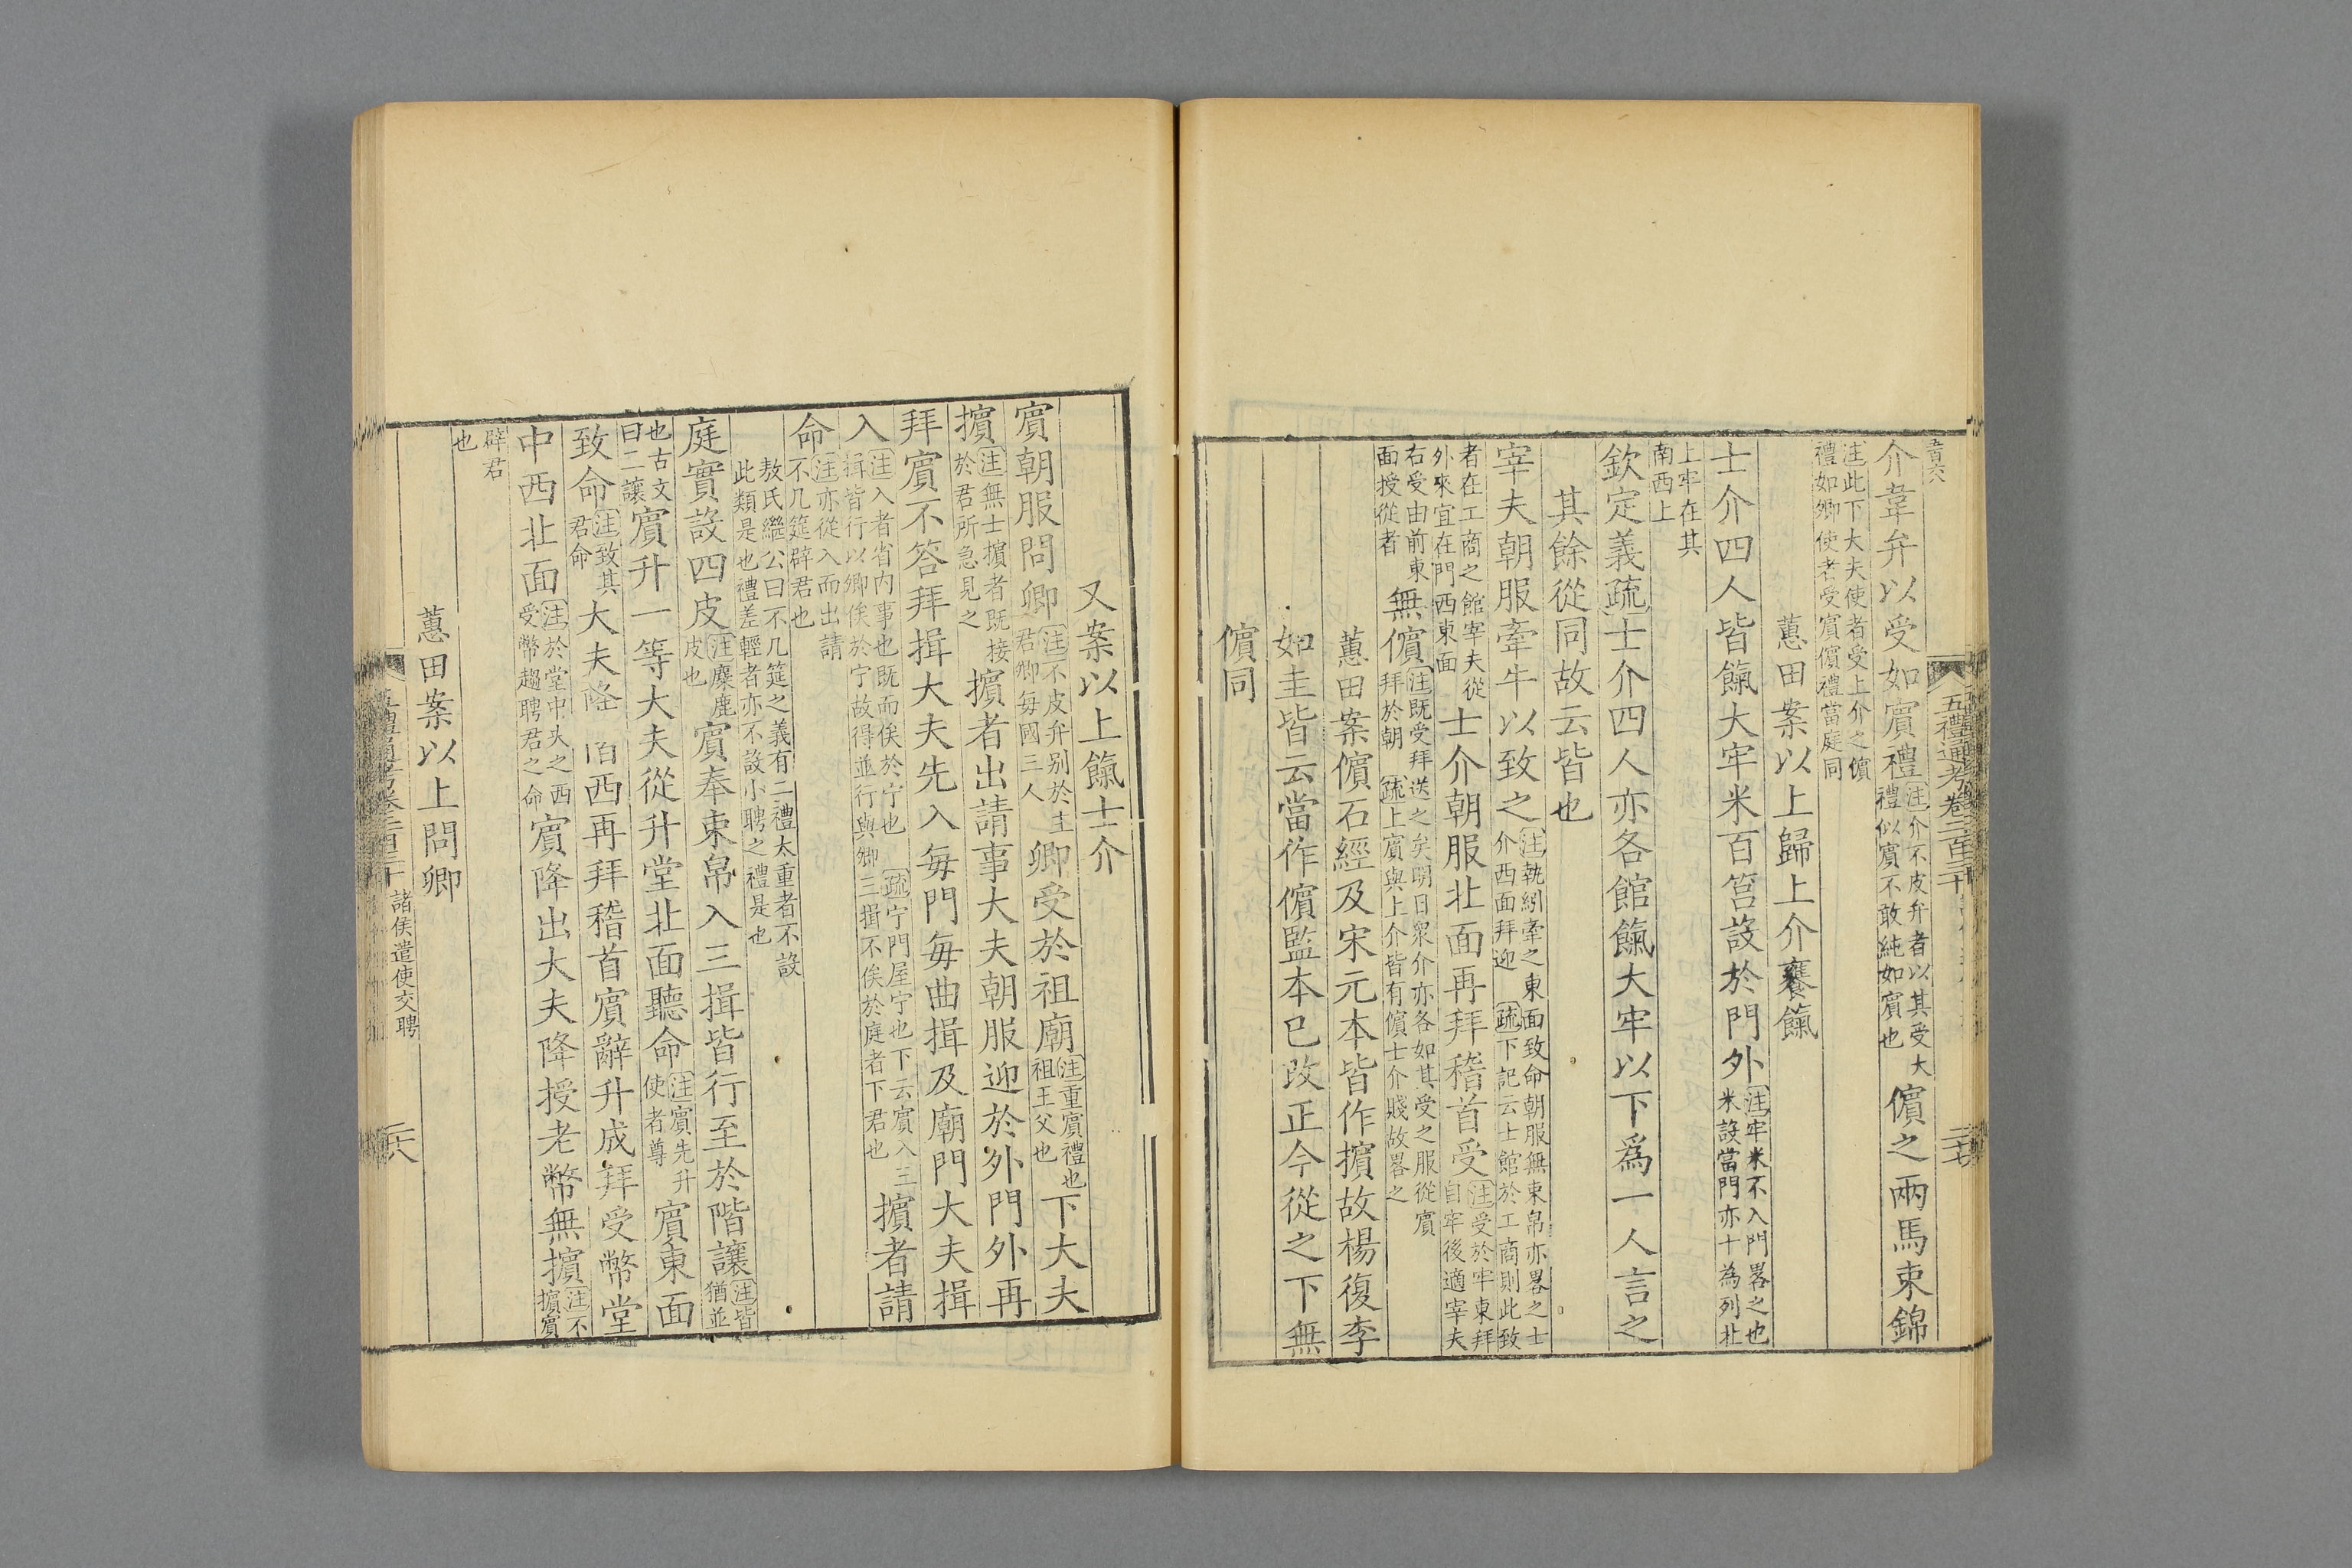 五禮通考卷二百三十
二七
介韋弁以受如賓禮注介不皮弁者以其受大禮似賓不敢純如賓也儐之兩馬束錦
注此下大夫使者受上介之儐禮如卿使者受賓儐禮當庭同
蕙田案以上歸上介饔餼
士介四人皆餼大牢米百筥設於門外注牢米不入門畧之也米設當門亦十為列北
上牢在其南西上
欽定義疏士介四人亦各館餼大牢以下為一人言之
其餘從同故云皆也
宰夫朝服牽牛以致之注執紖牽之東面致命朝服無束帛亦畧之士介西面拜迎疏下記云士館於工商則此致
者在工商之館宰夫從外來宜在門西東面士介朝服北面再拜稽首受注受於牢東拜自牢後適宰夫
右受由前東面授從者無儐注既受拜送之矣明日眾介亦各如其受之服從賓拜於朝疏上賓與上介皆有儐士介賤故畧之
蕙田案儐石經及宋元本皆作擯故楊復李
如圭皆云當作儐監本已改正今從之下無
儐同
又案以上餼士介
賓朝服問卿注不皮弁別於主君卿每國三人卿受於祖廟注重賓禮也祖王父也下大夫
擯注無士擯者既接於君所急見之擯者出請事大夫朝服迎於外門外再
拜賓不答拜揖大夫先入每門每曲揖及廟門大夫揖
入注入者省內事也既而俟於宁也揖皆行以卿俟於宁故得並行與卿三揖不俟於庭者下君也疏宁門屋宁也下云賓入三擯者請
命注亦從入而出請不几筵辟君也
敖氏繼公曰不几筵之義有二禮太重者不設此類是也禮差輕者亦不設小聘之禮是也
庭實設四皮注麋鹿皮也賓奉束帛入三揖皆行至於階讓注皆猶並
也古文曰二讓賓升一等大夫從升堂北面聽命注賓先升使者尊賓東面
致命注致其君命大夫降階西再拜稽首賓辭升成拜受幣堂
中西北面注於堂中央之西受幣趨聘君之命賓降出大夫降授老幣無擯注不擯賓
辟君也
蕙田案以上問卿
五禮通考卷二百三十 諸侯遣使交聘
二六